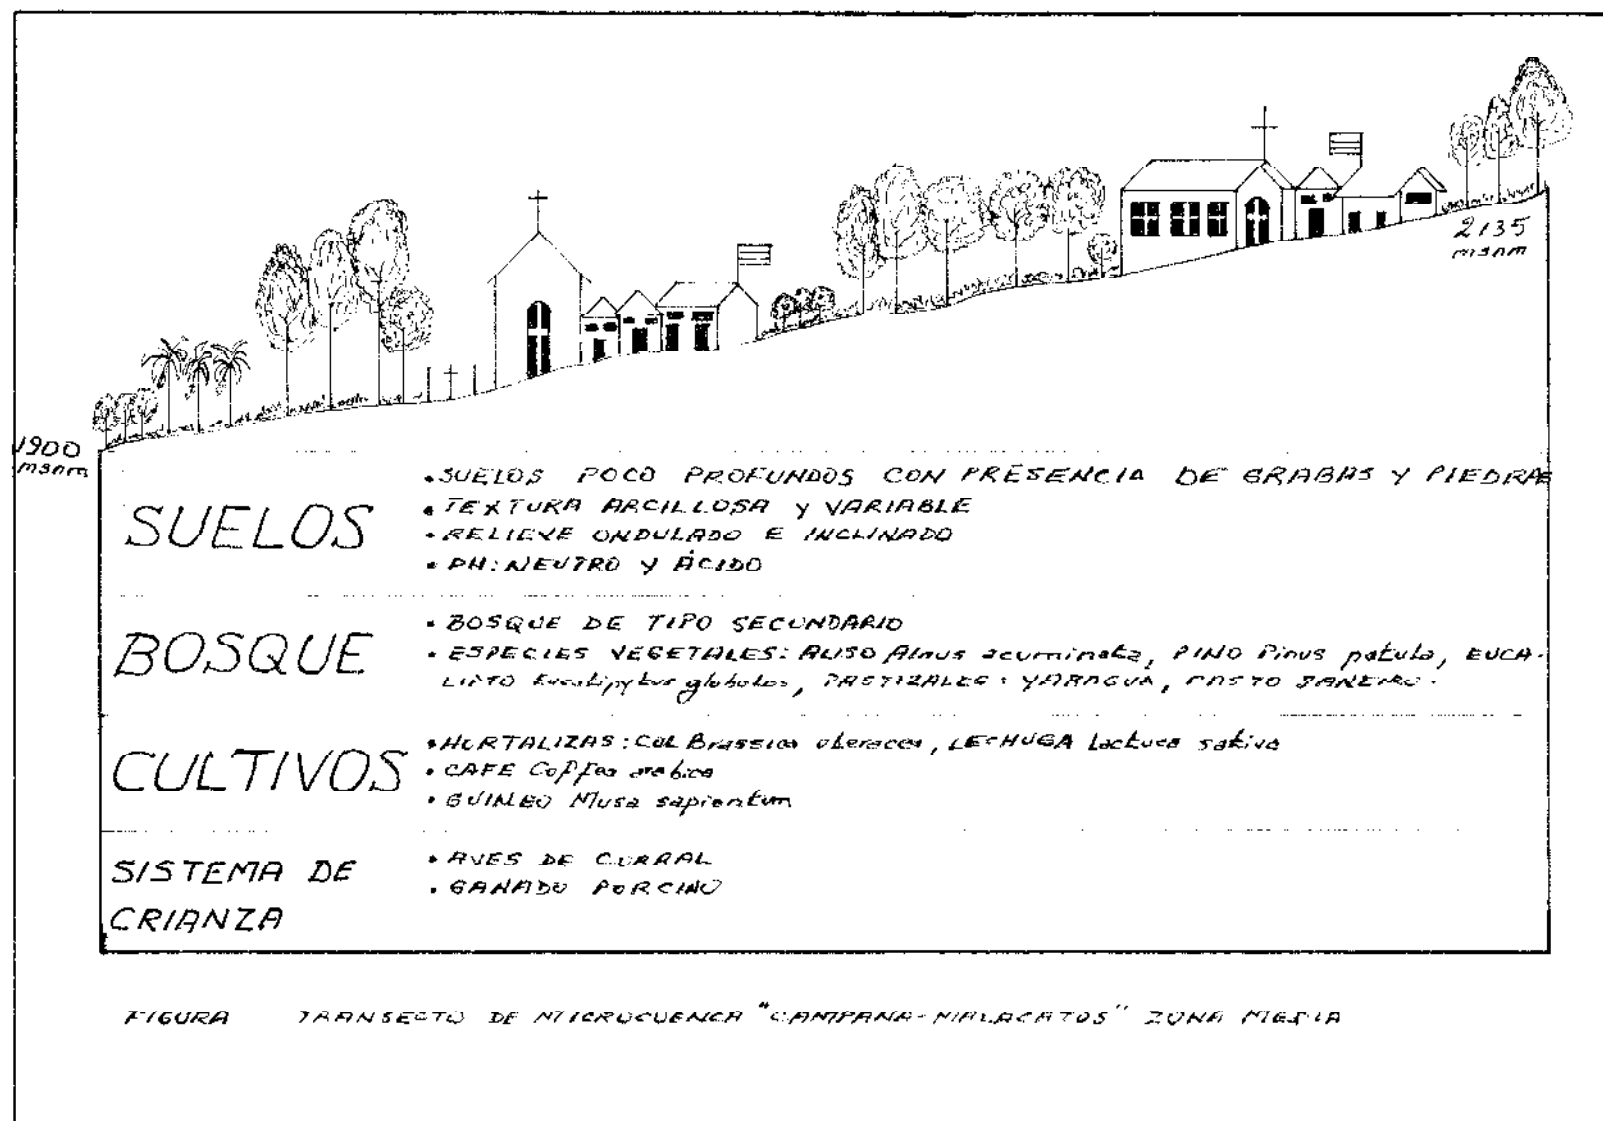 2135
msnm
1900
msnm
SUELOS
• SUELOS POCO PROFUNDOS CON PRESENCIA DE GRABAS Y PIEDRAS
• TEXTURA ARCILLOSA Y VARIABLE
• RELIEVE ONDULADO E INCLINADO
• PH: NEUTRO Y ÁCIDO
BOSQUE
• BOSQUE DE TIPO SECUNDARIO
• ESPECIES VEGETALES: ALISO Alnus acuminata, PINO Pinus patula, EUCA-
LIPTO globulos, PASTIZALES: YARAGUA, PASTO JANEIRO.
CULTIVOS
• HORTALIZAS: COL Brassica oleracea, LECHUGA Lactuca sativa
• CAFE Coffea arabica
• GUINEO Musa sapientum
SISTEMA DE
CRIANZA
• AVES DE CURRAL
• GANADO PORCINO
FIGURA TRANSECTO DE MICROCUENCA "CAMPANA-MALACATOS" ZONA MEDIA